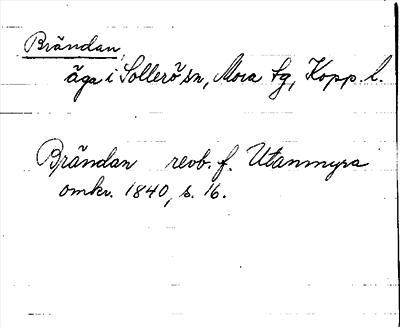 Brändan,
äga i Sollerö sn, Mora tg, Kopp. l.
Brändan revb. f. Utanmyra
omkr. 1840, s. 16.